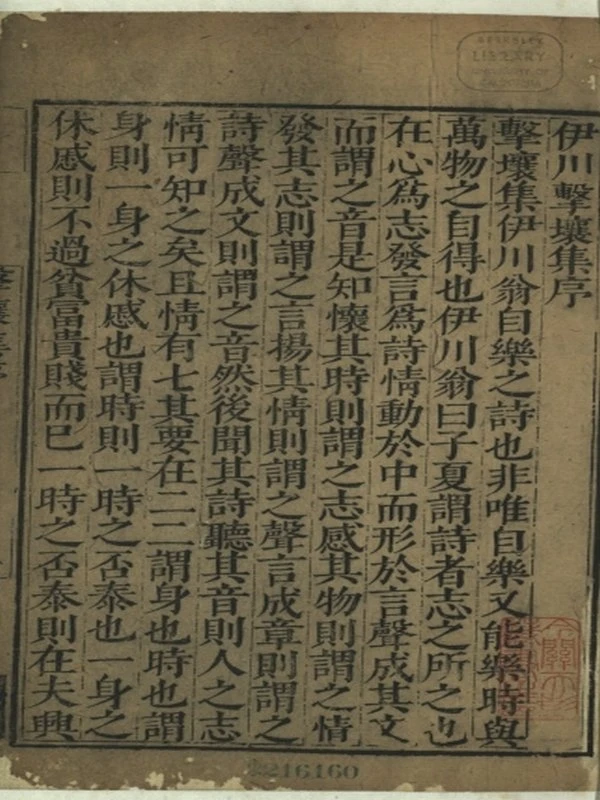 伊川擊壤集序
擊壤集伊川翁自樂之詩也非唯自樂又能樂時與
萬物之自得也伊川翁曰子夏謂詩者志之所之也
在心為志發言為詩情動於中而形於言聲成其文
而謂之音是知懷其時則謂之志感其物則謂之情
發其志則謂之言揚其情則謂之聲言成章則謂之
詩聲成文則謂之音然後聞其詩聽其音則人之志
情可知之矣且情有七其要在二二謂身也時也謂
身則一身之休慼也謂時則一時之否泰也一身之
休慼則不過貧富貴賤而已一時之否泰則在夫興
BERKELEY
LIBRARY
UNIVERSITY OF
CALIFORNIA
2216160